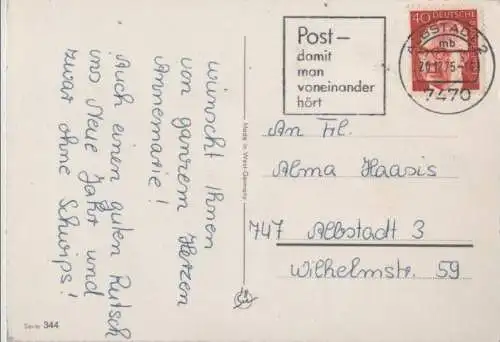 wünscht Ihnen
von ganzem Herzen
Annemarie!
Auch einen guten Rutsch
ins Neue Jahr und
zwar ohne Schwips!
Post –
damit
man
voneinander
hört
40 DEUTSCHE
ALBSTADT 2
mb
20.12.75-
7470
An Frl.
Alma Haasis
747 Albstadt 3
Wilhelmstr. 59
Made in West-Germany
Serie 344